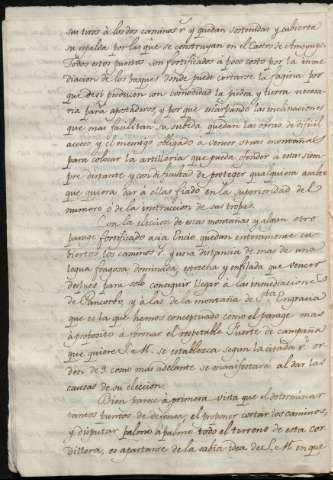 sus tiros à los dos caminos rs. y quedan sostenidas y cubierta
su espalda por las que se construyan en el Castro de Amaya
Todos estos puntos son fortificados à poco costo por la inme
diacion de los bosques donde puede cortarse la fagina por
que deis producen con comodidad la piedra, y tierra necesa
ria para apostaderos, y por que escarpando las inclinaciones
que mas facilitan su subida quedan las obras de dificil
acceso y el enemigo obligado a vencer otras montañas
para colocar la artilleria que pueda ofender à estas siem
pre distante y con dificultad de proteger qualquiera asalto
que quiera dar a ellas fiado en la superioridad del
numero ò de la instruccion de sus tropas.
Con la eleccion de estas montañas y algun otro
parage fortificado acia Encio, quedan enteramente cu
biertos los caminos rs. y una distancia de mas de una
legua fragosa, dominada, estrecha y enfilada que vencer
despues para solo conseguir llegar à las inmediaciones
de Pancorbo, y à las de la montaña de Sta. Engracia
que es la que hemos conceptuado como el parage mas
à proposito à formar el respetable Fuerte de campaña
que quiere S. M. se establezca segun la citada rl. or
den de 3. como mas adelante se manifestara al dar las
causas de su eleccion.
Bien parece à primera vista que el determinar
tantos puntos de defensa, el proponer cortar los caminos,
y disputar palmo à palmo todo el terreno de esta cor
dillera, es apartarse de la sabia idea de S. M. en que